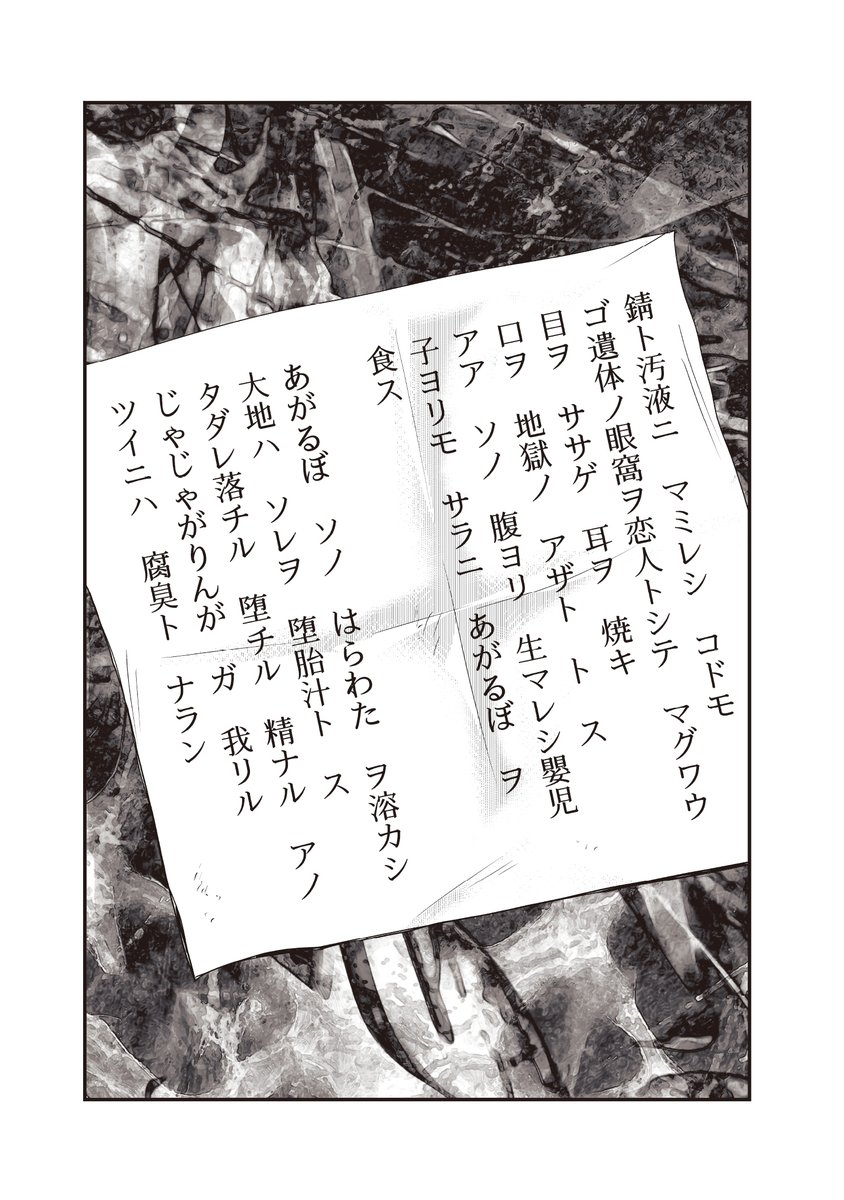 錆ト汚液ニ　マミレシ　コドモ
ゴ遺体ノ眼窩ヲ恋人トシテ　マグワウ
目ヲ　ササゲ　耳ヲ　焼キ
口ヲ　地獄ノ　アザト　ト　ス
アア　ソノ　腹ヨリ　生マレシ嬰児
子ヨリモ　サラニ　あがるぼ　ヲ
食ス
あがるぼ　ソノ　はらわた　ヲ溶カシ
大地ハ　ソレヲ　堕胎汁ト　ス
タダレ落チル　堕チル　精ナル　アノ
じゃじゃがりんが　ガ　我リル
ツイニハ　腐臭ト　ナラン